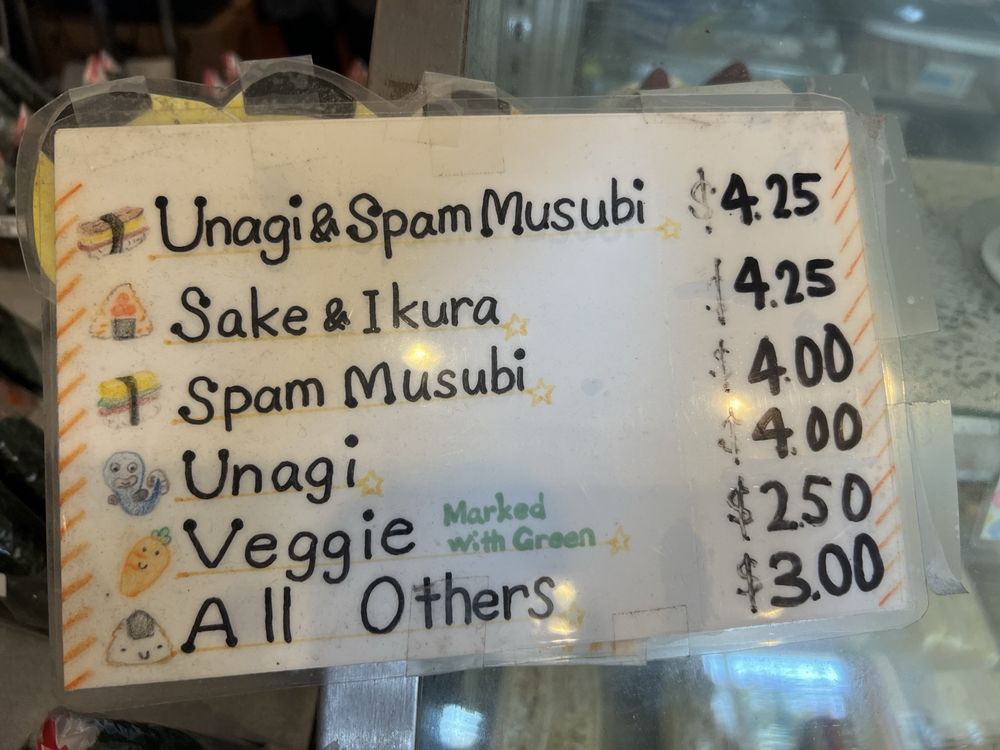 Unagi & Spam Musubi $4.25
Sake & Ikura $4.25
Spam Musubi $4.00
Unagi $4.00
Veggie Marked with Green $2.50
All Others $3.00